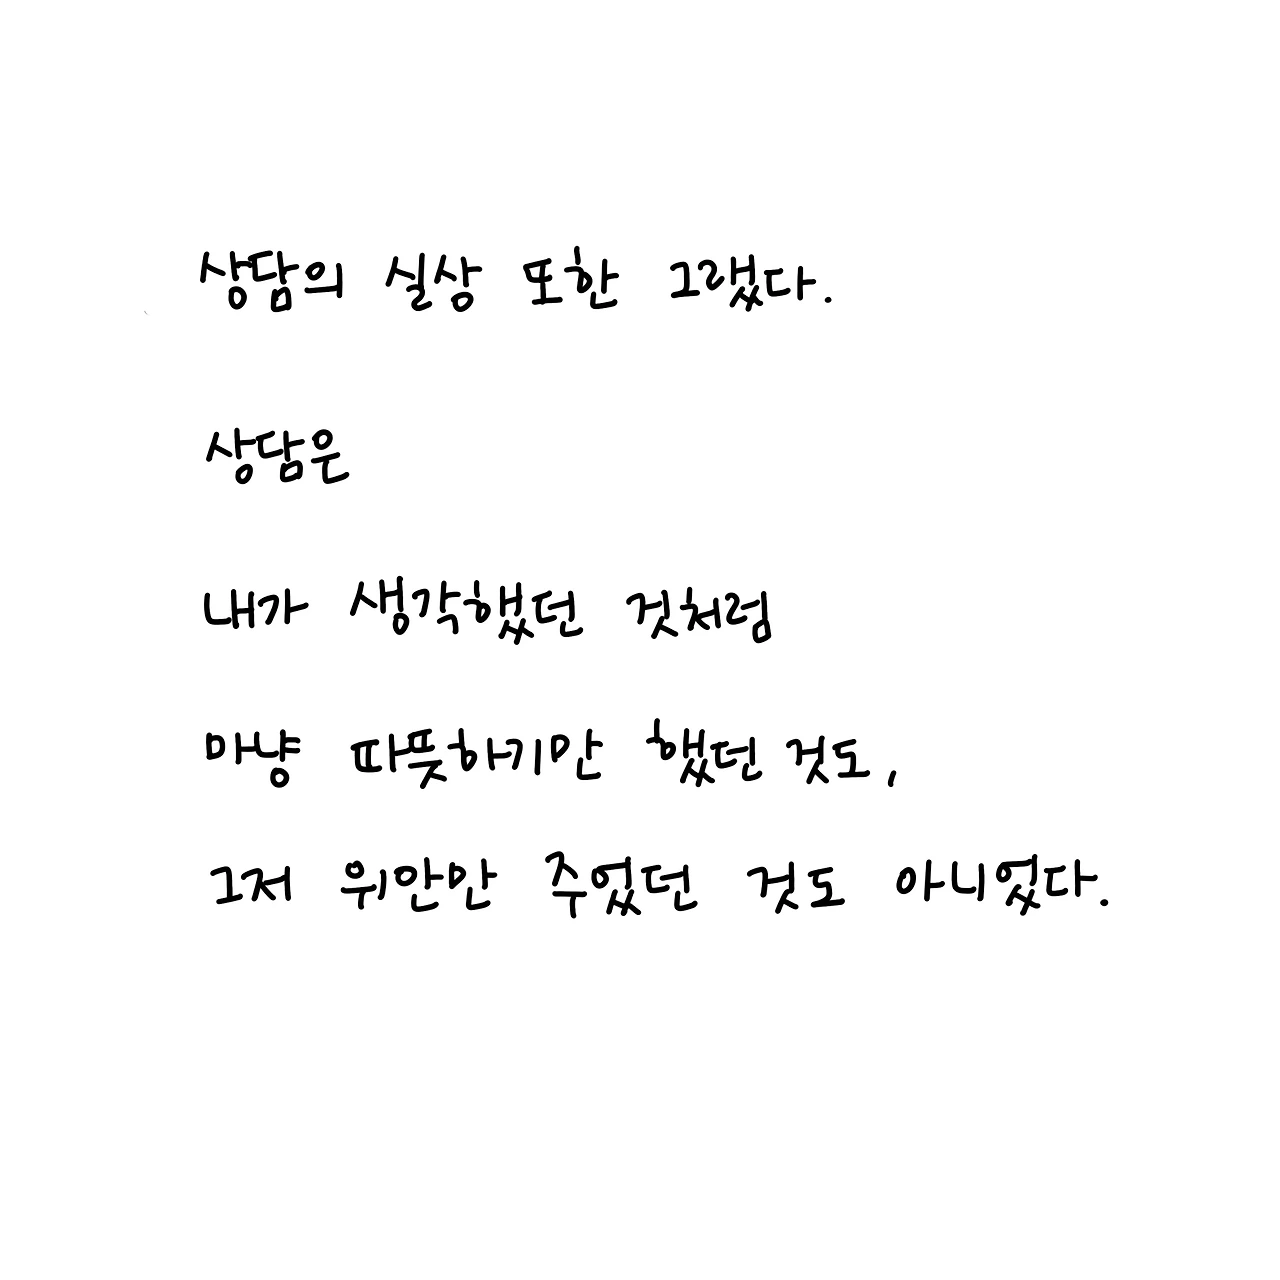 상담의 실상 또한 그랬다.
상담은
내가 생각했던 것처럼
마냥 따뜻하기만 했던 것도,
그저 위안만 주었던 것도 아니었다.